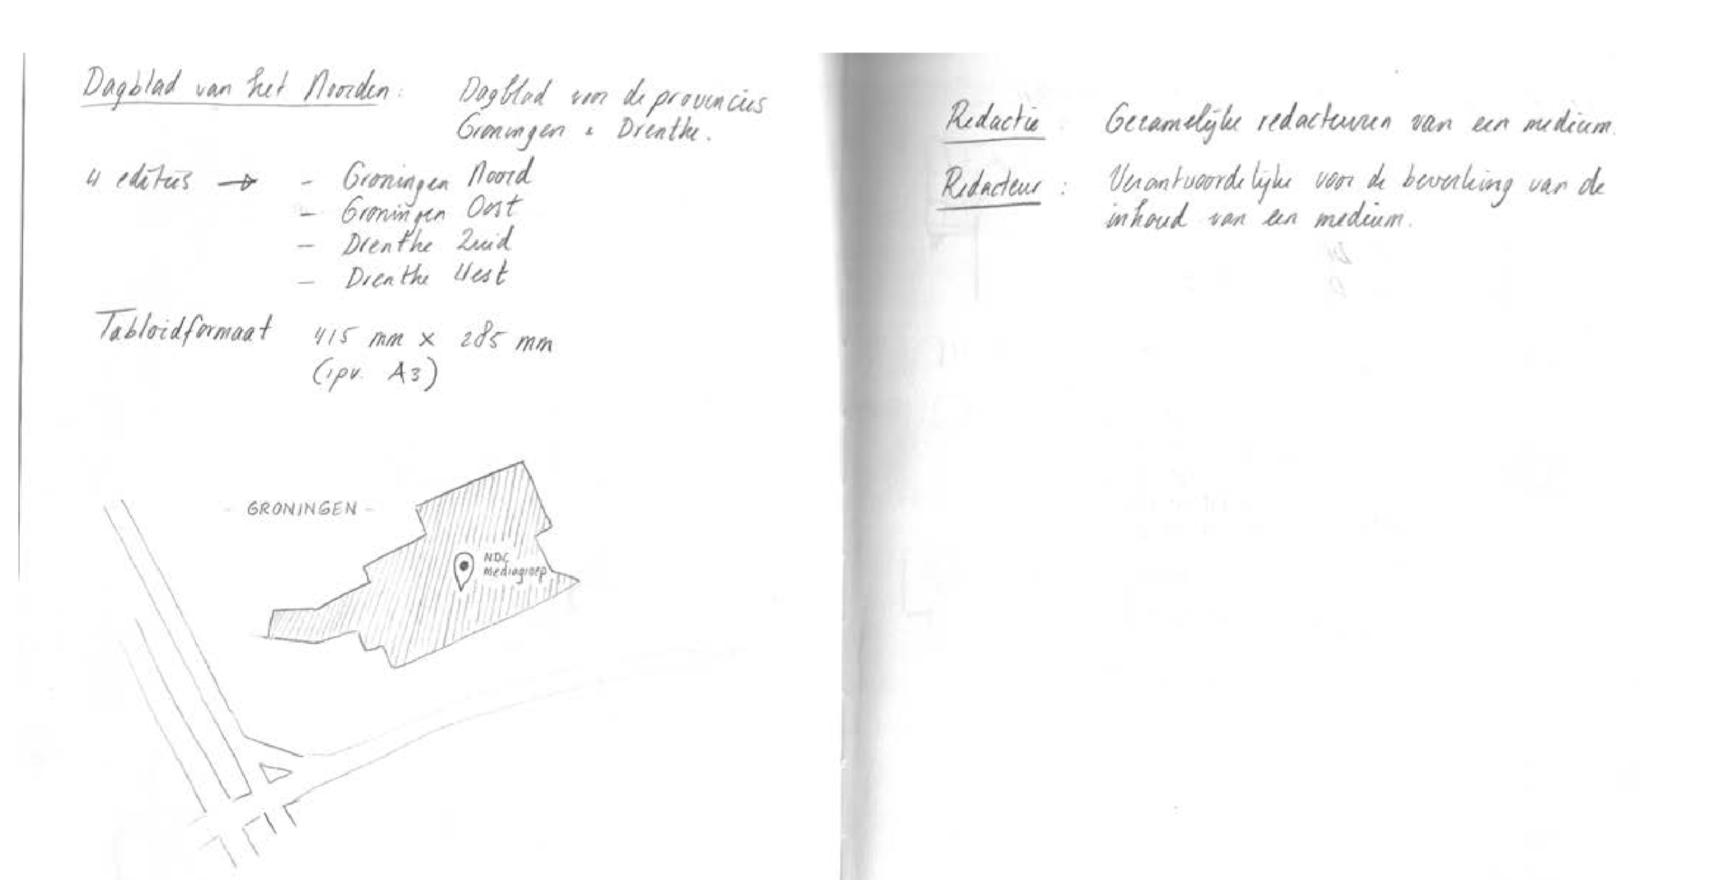 Dagblad van het Noorden: Dagblad voor de provincies
Groningen & Drenthe.
4 edities → - Groningen Noord
- Groningen Oost
- Drenthe Zuid
- Drenthe West
Tabloidformaat 415 mm x 285 mm
(ipv. A3)
- GRONINGEN -
NDC
mediagroep
Redactie : Gezamelijke redacteuren van een medium.
Redacteur : Verantwoordelijke voor de bewerking van de
inhoud van een medium.